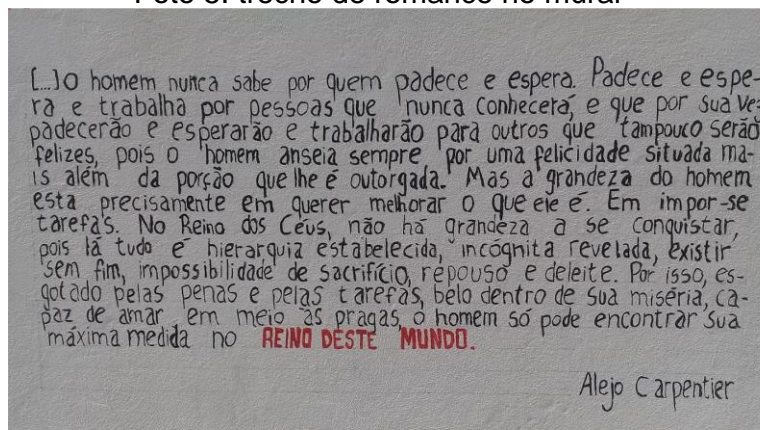 trecho de romance no mural
[...]O homem nunca sabe por quem padece e espera. Padece e espe-
ra e trabalha por pessoas que nunca conhecerá, e que por sua vez
padecerão e esperarão e trabalharão para outros que tampouco serão
felizes, pois o homem anseia sempre por uma felicidade situada ma-
is além da porção que lhe é outorgada. Mas a grandeza do homem
esta precisamente em querer melhorar o que ele é. Em impor-se
tarefas. No Reino dos Céus, não há grandeza a se conquistar,
pois lá tudo é hierarquia estabelecida, incógnita revelada, existir
sem fim, impossibilidade de sacrifício, repouso e deleite. Por isso, es-
gotado pelas penas e pelas tarefas, belo dentro de sua miséria, ca-
paz de amar em meio às pragas, o homem só pode encontrar sua
máxima medida no REINO DESTE MUNDO.
Alejo Carpentier